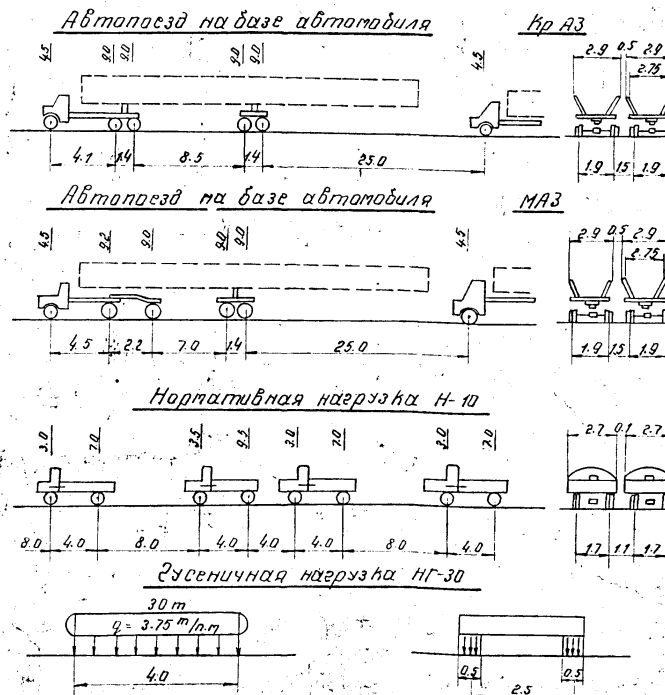 Автопоезд на базе автомобиля КрАЗ
4.5 9.0 9.0 9.0 9.0 4.5 2.9 0.5 2.9
2.75
4.1 1.4 8.5 1.4 25.0 1.9 1.5 1.9
Автопоезд на базе автомобиля МАЗ
4.5 9.2 9.0 9.0 9.0 4.5 2.9 0.5 2.9
2.75
4.5 2.2 7.0 1.4 25.0 1.9 1.5 1.9
Нормативная нагрузка Н-10
3.0 7.0 3.5 9.5 3.0 7.0 3.0 7.0 2.7 0.1 2.7
8.0 4.0 8.0 4.0 4.0 4.0 8.0 4.0 1.7 1.1 1.7
Гусеничная нагрузка НГ-30
30 т
q = 3.75 т/п.м
4.0 0.5 0.5
2.5